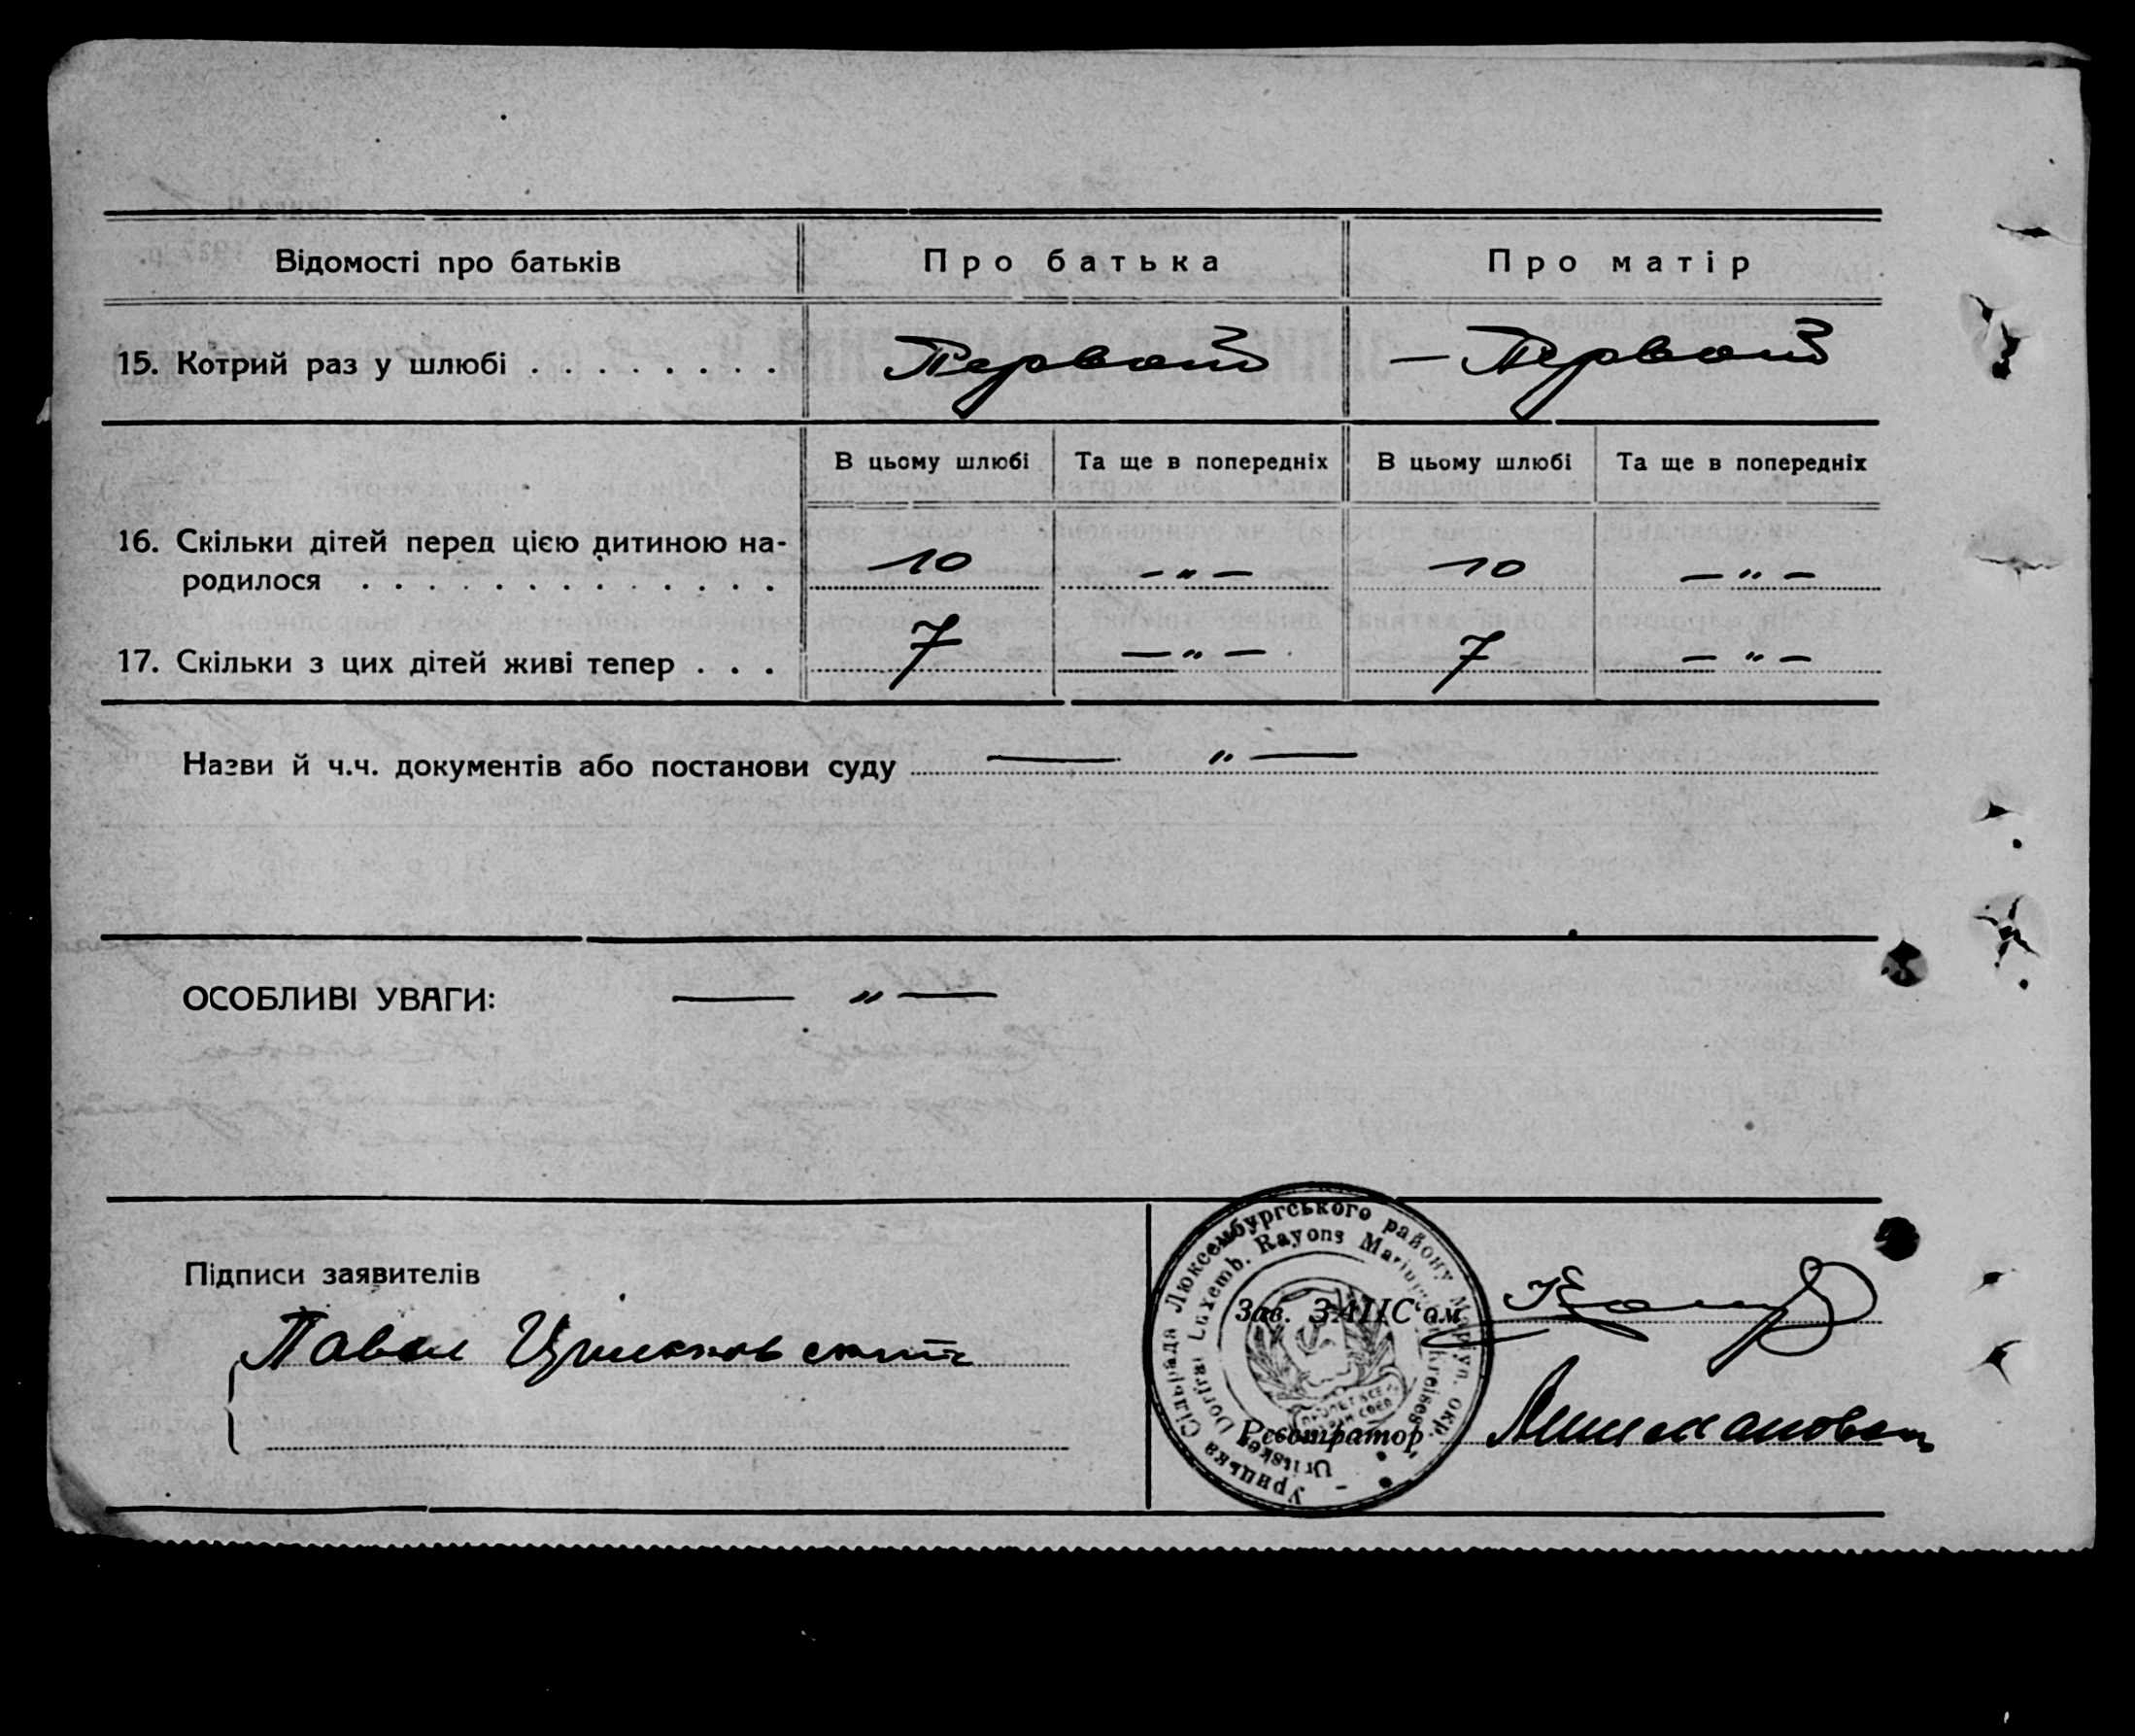 Відомості про батьків Про батька Про матір
15. Котрий раз у шлюбі . . . . . . . . Первой — Первой
В цьому шлюбі Та ще в попередніх В цьому шлюбі Та ще в попередніх
16. Скільки дітей перед цією дитиною на-
родилося . . . . . . . . . . . . . 10 — „ — 10 — „ —
17. Скільки з цих дітей живі тепер . . . 7 — „ — 7 — „ —
Назви й ч.ч. документів або постанови суду — „ —
ОСОБЛИВІ УВАГИ: — „ —
Урицька Сільрада Люксембургського району Маріуп. окр.
Rayons
Підписи заявителів
Зав. ЗАЦС'ом
Павел
Реєстратор